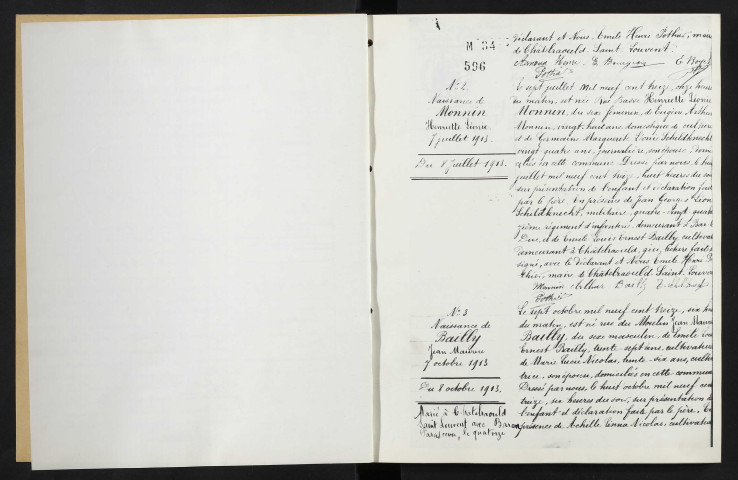 déclarant et Nous, Emile Henri Pothier, maire
de Châtelraould Saint Louvent.
M 34
596
N° 2
Naissance de
Monnin
Henriette Léonie
7 juillet 1913.
Du 8 Juillet 1913.
Le sept juillet mil neuf cent treize, onze heures
du matin, est née Rue Basse Henriette Léonie
Monnin, du sexe féminin, de Eugène Arthur
Monnin, vingt-huit ans, domestique de culture
et de Germaine Marguerite Louise Schildknecht
vingt quatre ans, journalière, son épouse, domi
ciliés en cette commune. Dressé par nous, le huit
juillet mil neuf cent treize, huit heures du soir
sur présentation de l'enfant et déclaration faite
par le père. En présence de Jean Georges Léon
Schildknecht, militaire, quatre-vingt quator
zième régiment d'infanterie, demeurant à Bar-le
Duc, et de Emile Louis Ernest Bailly, cultivateur
demeurant à Châtelraould, qui, lecture faite,
signé, avec le déclarant et Nous Emile Henri Po
thier, maire de Châtelraould Saint Louvent
Monnin Arthur Bailly
N° 3
Naissance de
Bailly
Jean Maurice
7 octobre 1913
Du 8 octobre 1913.
Marié à Châtelraould
Saint Louvent avec
le quatorze
Le sept octobre mil neuf cent treize, six heures
du matin, est né rue du Moulin Jean Maurice
Bailly, du sexe masculin, de Emile Louis
Ernest Bailly, trente sept ans, cultivateur
de Marie Lucie Nicolas, trente-six ans, cultiva
trice, son épouse, domiciliés en cette commune
Dressé par nous, le huit octobre mil neuf cent
treize, six heures du soir, sur présentation de
l'enfant et déclaration faite par le père. En
présence de Achille Nicolas, cultivateur